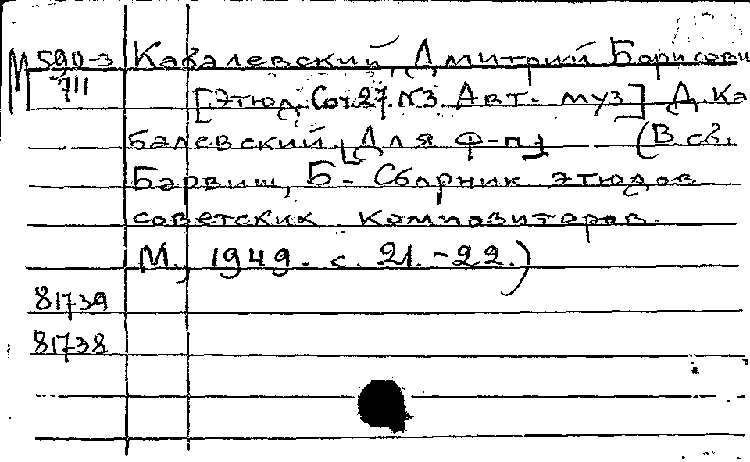 М 590-3 Кабалевский, Дмитрий Борисови
711 [Этюд. Соч. 27. №3. Авт. муз] Д. Ка
балевский. [Для ф-п.] (В сб.
Барвиш, Б- Сборник этюдов
советских композиторов.
М., 1949. с. 21.-22.)
81739
81738